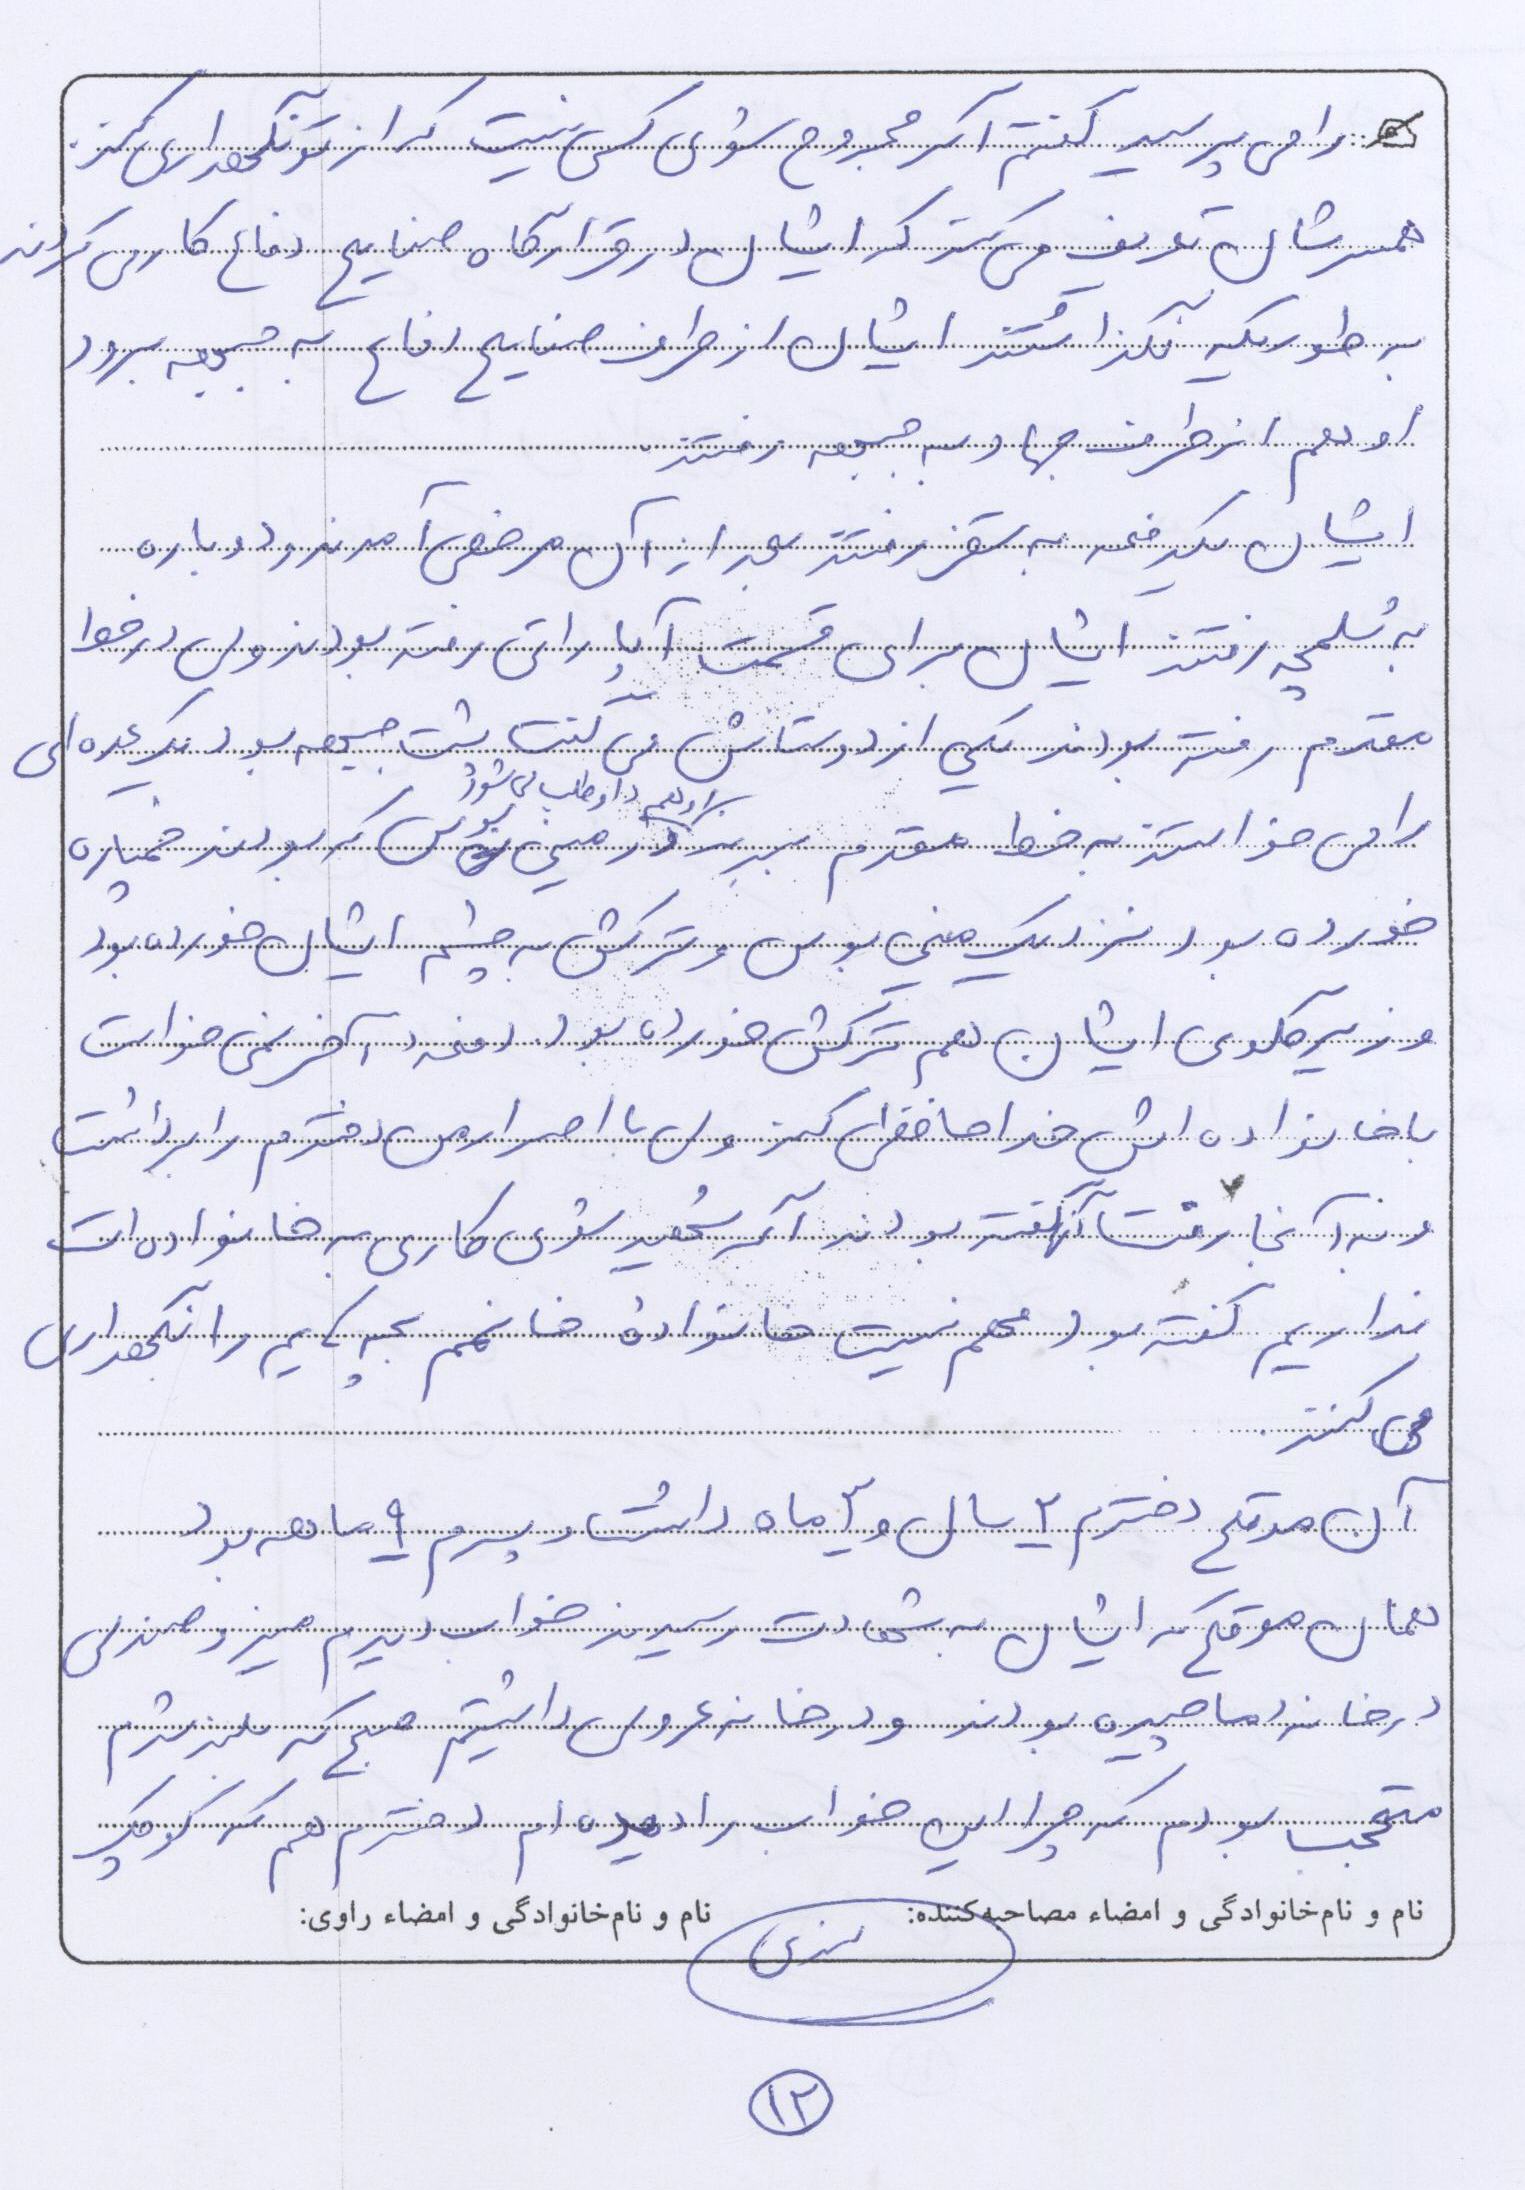 را می پرسید گفتم اگر مجروح شوی کسی نیست که از تو نگهداری کند.
همسرشان تعریف می کند که ایشان در قرارگاه صنایع دفاع کار می کردند
به طوریکه نگذاشتند ایشان از طرف صنایع دفاع به جبهه برود
او هم از طرف جهاد به جبهه رفتند.
ایشان یکدفعه به سقز رفتند بعد از آن مرخصی آمدند و دوباره
به شلمچه رفتند ایشان برای قسمت آپاراتی رفته بودند ولی در خط
مقدم رفته بودند یکی از دوستاش می گفت پشت جبهه بود یک عده ای
را می خواستند به خط مقدم ببرند او هم داوطلب می شود در مینی بوس که بودند خمپاره
خورده بود نزدیک مینی بوس و ترکش به چشم ایشان خورده بود
و زیر گلوی ایشان هم ترکش خورده بود. دفعه آخر نمی خواست
با خانواده اش خداحافظی کند ولی با اصرار من دفترم را برداشت
و به آنجا رفت آنها گفته بودند اگر شهید شوی کاری به خانواده ات
نداریم گفته بود مهم نیست خانوادهٔ خانمم بچه هایم را نگهداری
می کنند.
آن موقع دخترم ۲ سال و ۲ ماه داشت و پسرم ۹ ماهه بود
همان موقع که ایشان به شهادت رسیدند خواب دیدم میز و صندلی
در خانه ما چیده بودند و در خانه عروسی داشتیم صبح که بلند شدم
متعجب بودم که چرا این خواب را دیده ام دخترم هم که کوچک
نام و نام‌خانوادگی و امضاء مصاحبه‌کننده: نام و نام‌خانوادگی و امضاء راوی:
۱۲